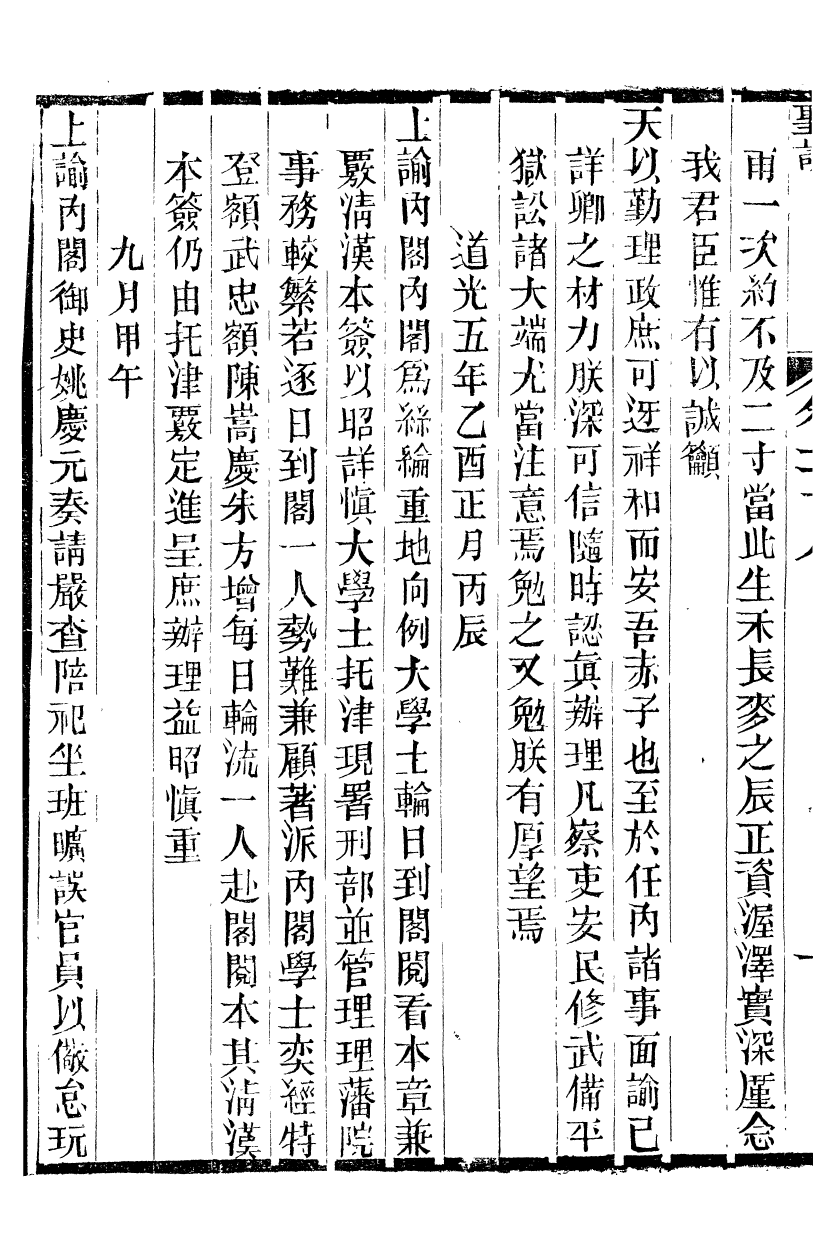 聖訓
雨一次約不及二寸當此生禾長麥之辰正資渥澤實深厪念
我君臣惟有以誠籲
天以勤理政庶可迓祥和而安吾赤子也至於任內諸事面諭已
詳卿之材力朕深可信隨時認眞辦理凡察吏安民修武備平
獄訟諸大端尤當注意焉勉之又勉朕有厚望焉
道光五年乙酉正月丙辰
上諭內閣內閣爲絲綸重地向例大學士輪日到閣閱看本章兼
覈清漢本簽以昭詳愼大學士托津現署刑部並管理理藩院
事務較繁若逐日到閣一人勢難兼顧著派內閣學士奕經特
登額武忠額陳嵩慶朱方增每日輪流一人赴閣閱本其淸漢
本簽仍由托津覈定進呈庶辦理益昭愼重
九月甲午
上諭內閣御史姚慶元奏請嚴查陪祀坐班曠誤官員以儆怠玩